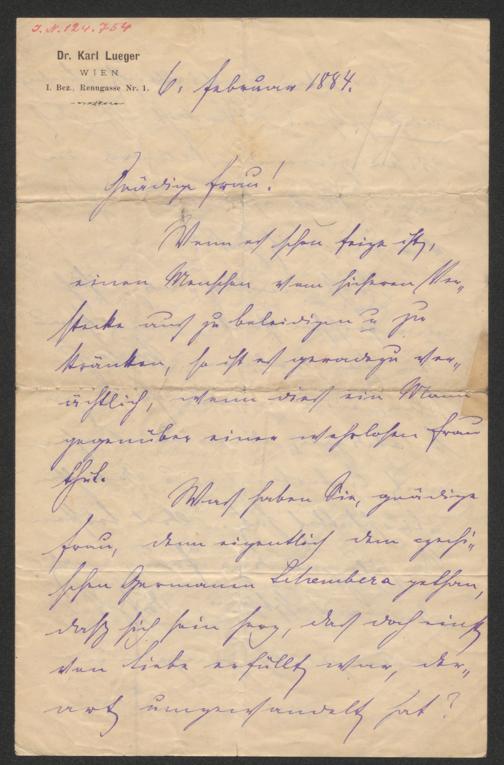 J.N. 124.754
Dr. Karl Lueger
WIEN
I. Bez., Renngasse Nr. 1.
6. Februar 1884.
Gnädige Frau!
Wenn es schon feige ist,
einen Menschen vom sicheren Ver-
stecke aus zu beleidigen u zu
kränken, so ist es geradezu ver-
ächtlich, wenn dies ein Mann
gegenüber einer wehrlosen Frau
thut.
Was haben Sie, gnädige
Frau, denn eigentlich dem czechi-
schen Germanen Lihembera gethan,
daß sich sein Herz, das doch einst
von Liebe erfüllt war, der-
art umgewandelt hat?